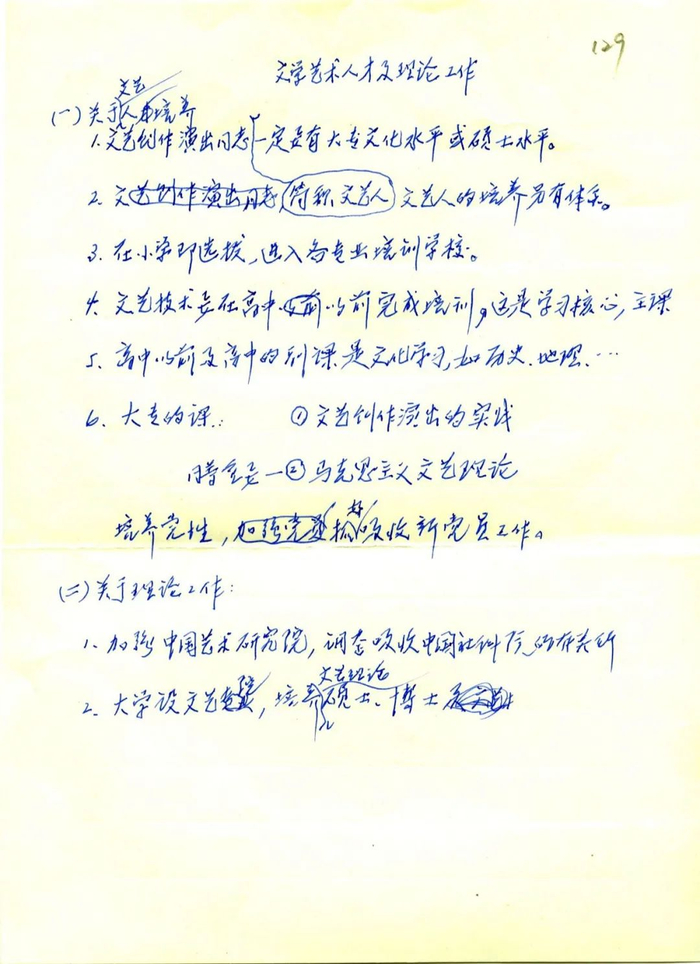 129
文学艺术人才及理论工作
(一)关于文艺人才培养
1.文艺创作演出同志(简称文艺人)一定要有大专文化水平或硕士水平。
2.文艺人的培养另有体系。
3.在小学即选拔,进入各专业培训学校。
4.文艺技术要在高中以前完成培训,这是学习核心,主课
5.高中以前及高中的副课是文化学习,如历史、地理、…
6.大专的课: ①文艺创作演出的实践
同等重要—②马克思主义文艺理论
培养党性,抓好吸收新党员工作。
(二)关于理论工作:
1.加强中国艺术研究院,调整吸收中国社科院的有关所
2.大学设文艺院,培养文艺理论硕士、博士